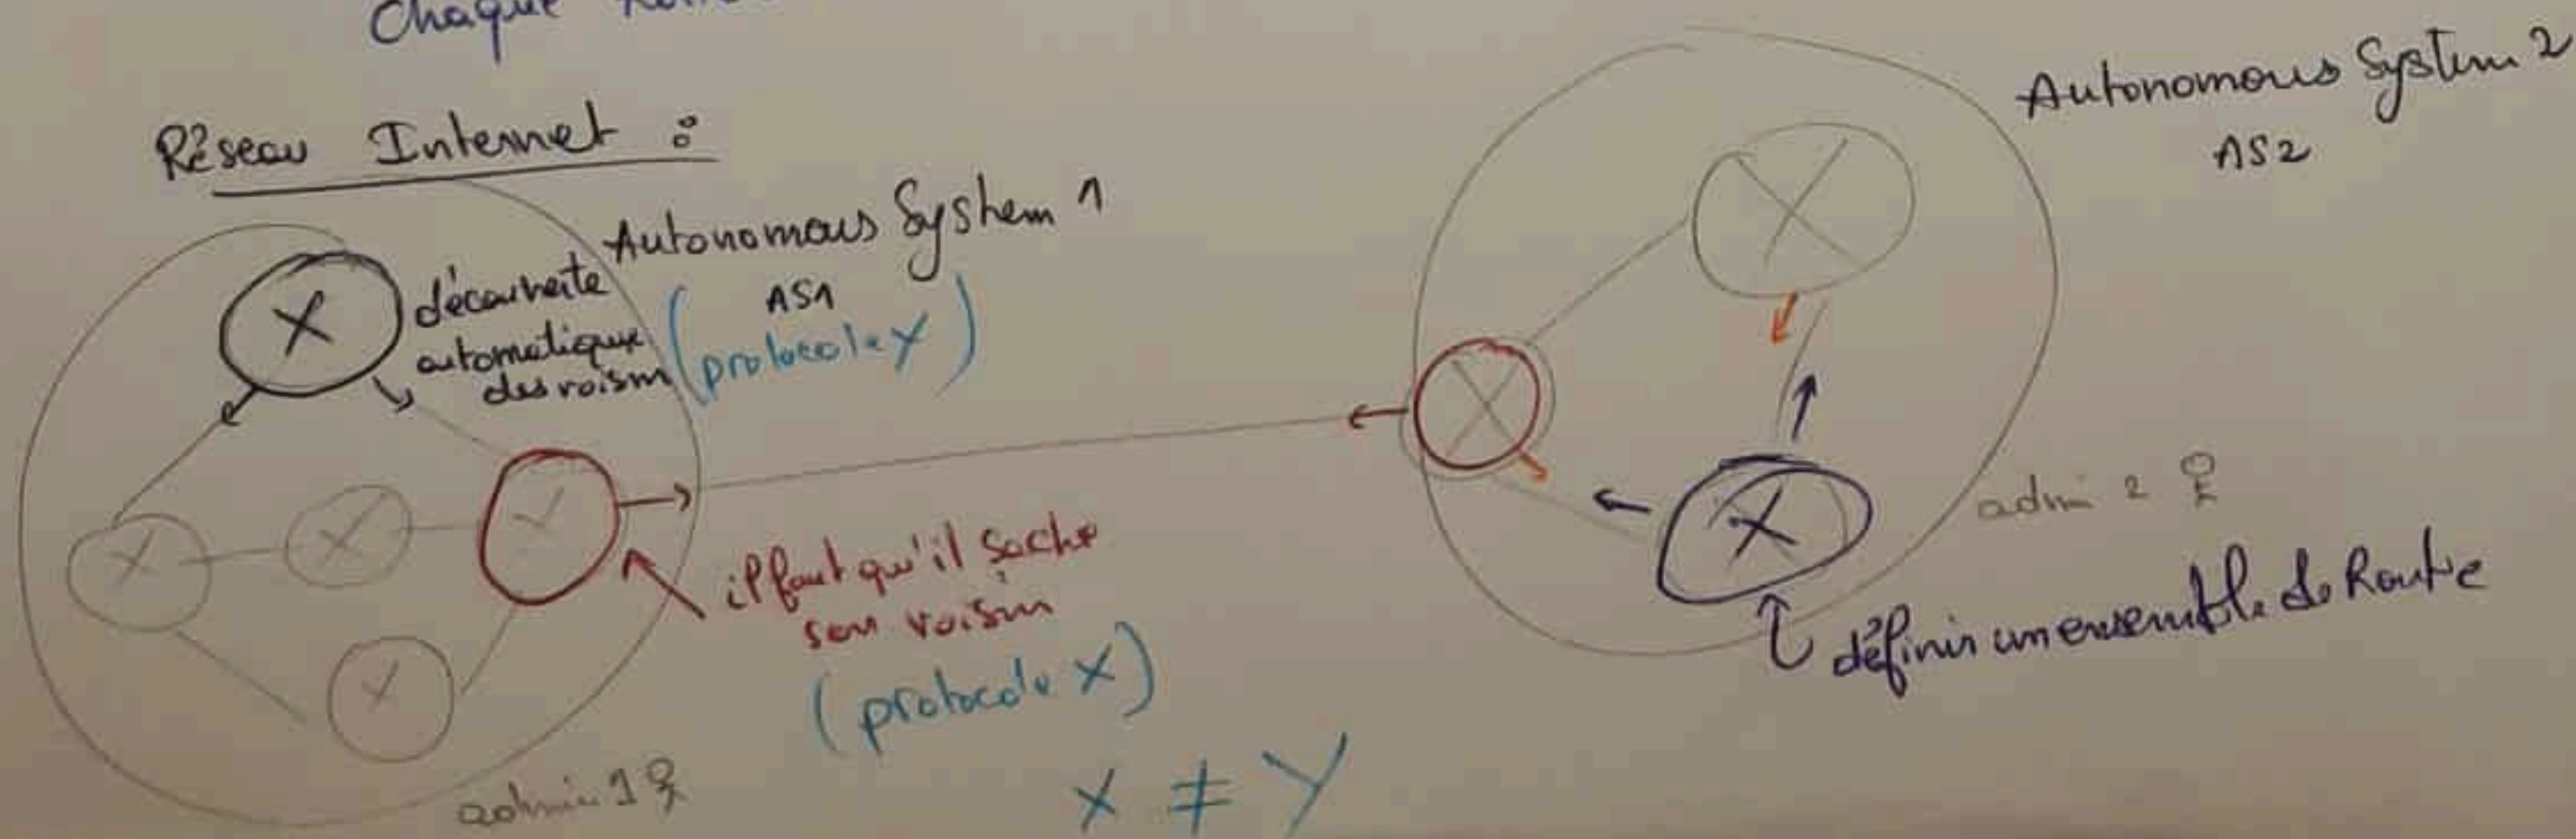 Chaque
Réseau Internet :
Autonomous System 1
AS1
(protocole Y)
découverte
automatique
des voisin
il faut qu'il sache
son voisin
(protocole X)
X ≠ Y
admin 1
Autonomous System 2
AS2
admi 2
définir un ensemble de Route